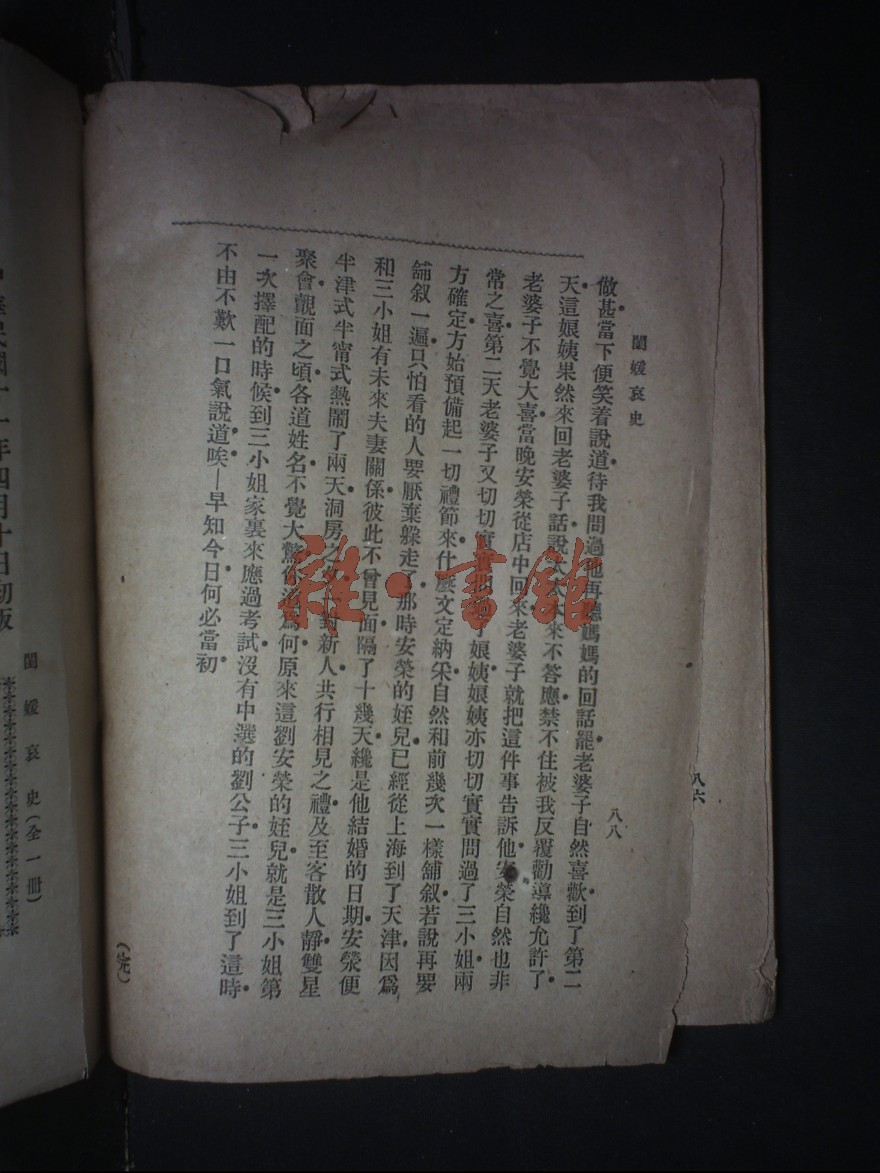 閨媛哀史
八八
做甚當下便笑着說道待我問過他再聽媽媽的回話罷老婆子自然喜歡到了第二
天這娘姨果然來回老婆子話說太太本來不答應禁不住被我反覆勸導纔允許了
老婆子不覺大喜當晚安榮從店中回來老婆子就把這件事告訴他安榮自然也非
常之喜第二天老婆子又切切實實問了娘姨娘姨亦切切實實問過了三小姐兩
方確定方始預備起一切禮節來什麽文定納采自然和前幾次一樣舖叙若說再要
舖叙一遍只怕看的人要厭棄躱走了那時安榮的姪兒已經從上海到了天津因爲
和三小姐有未來夫妻關係彼此不曾見面隔了十幾天纔是他結婚的日期安榮便
半津式半甯式熱鬧了兩天洞房之夕一對新人共行相見之禮及至客散人靜雙星
聚會覿面之頃各道姓名不覺大驚你道爲何原來這劉安榮的姪兒就是三小姐第
一次擇配的時候到三小姐家裏來應過考試沒有中選的劉公子三小姐到了這時
不由不歎一口氣說道唉—早知今日何必當初
(完)
八六
中華民國十一年四月十日初版
閨媛哀史(全一冊)
雜·書館